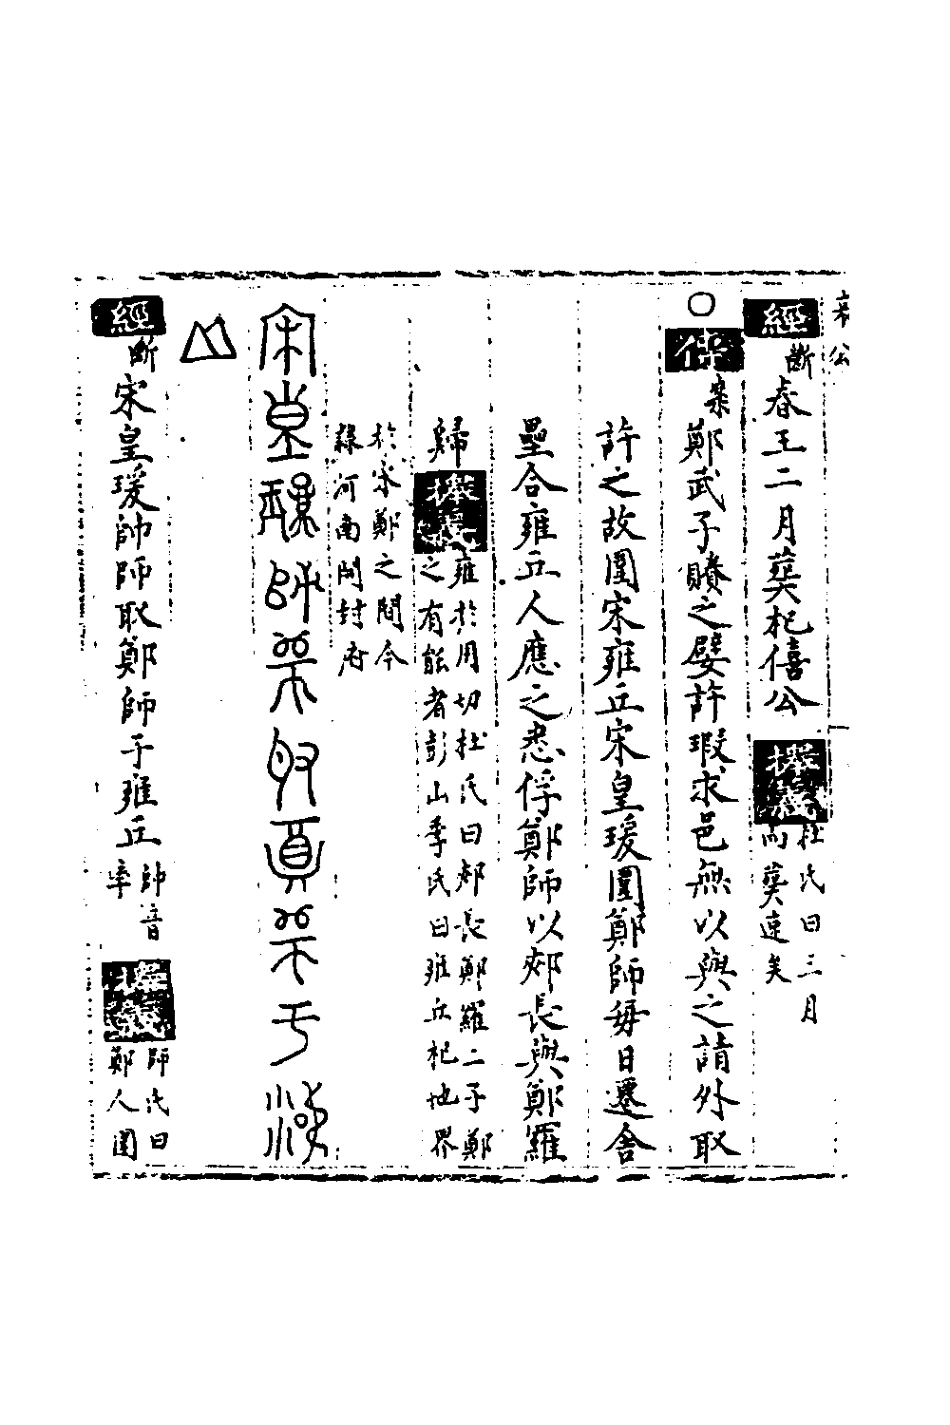 哀公
經斷春王二月葬杞僖公擬義杜氏曰三月
而葬速矣
○傳案鄭武子賸之嬖許瑕求邑無以與之請外取
許之故圍宋雍丘宋皇瑗圍鄭師每日遷舍
壘合雍丘人應之悉俘鄭師以郟長與鄭羅
歸擬義雍於用切杜氏曰郟長鄭羅二子鄭
之有能者彭山季氏曰雍丘杞地界
於宋鄭之間今
隸河南開封府
宋皇瑗帥師取鄭師于雍
丘
經斷宋皇瑗帥師取鄭師于雍丘帥音
率擬義師氏曰
鄭人圍